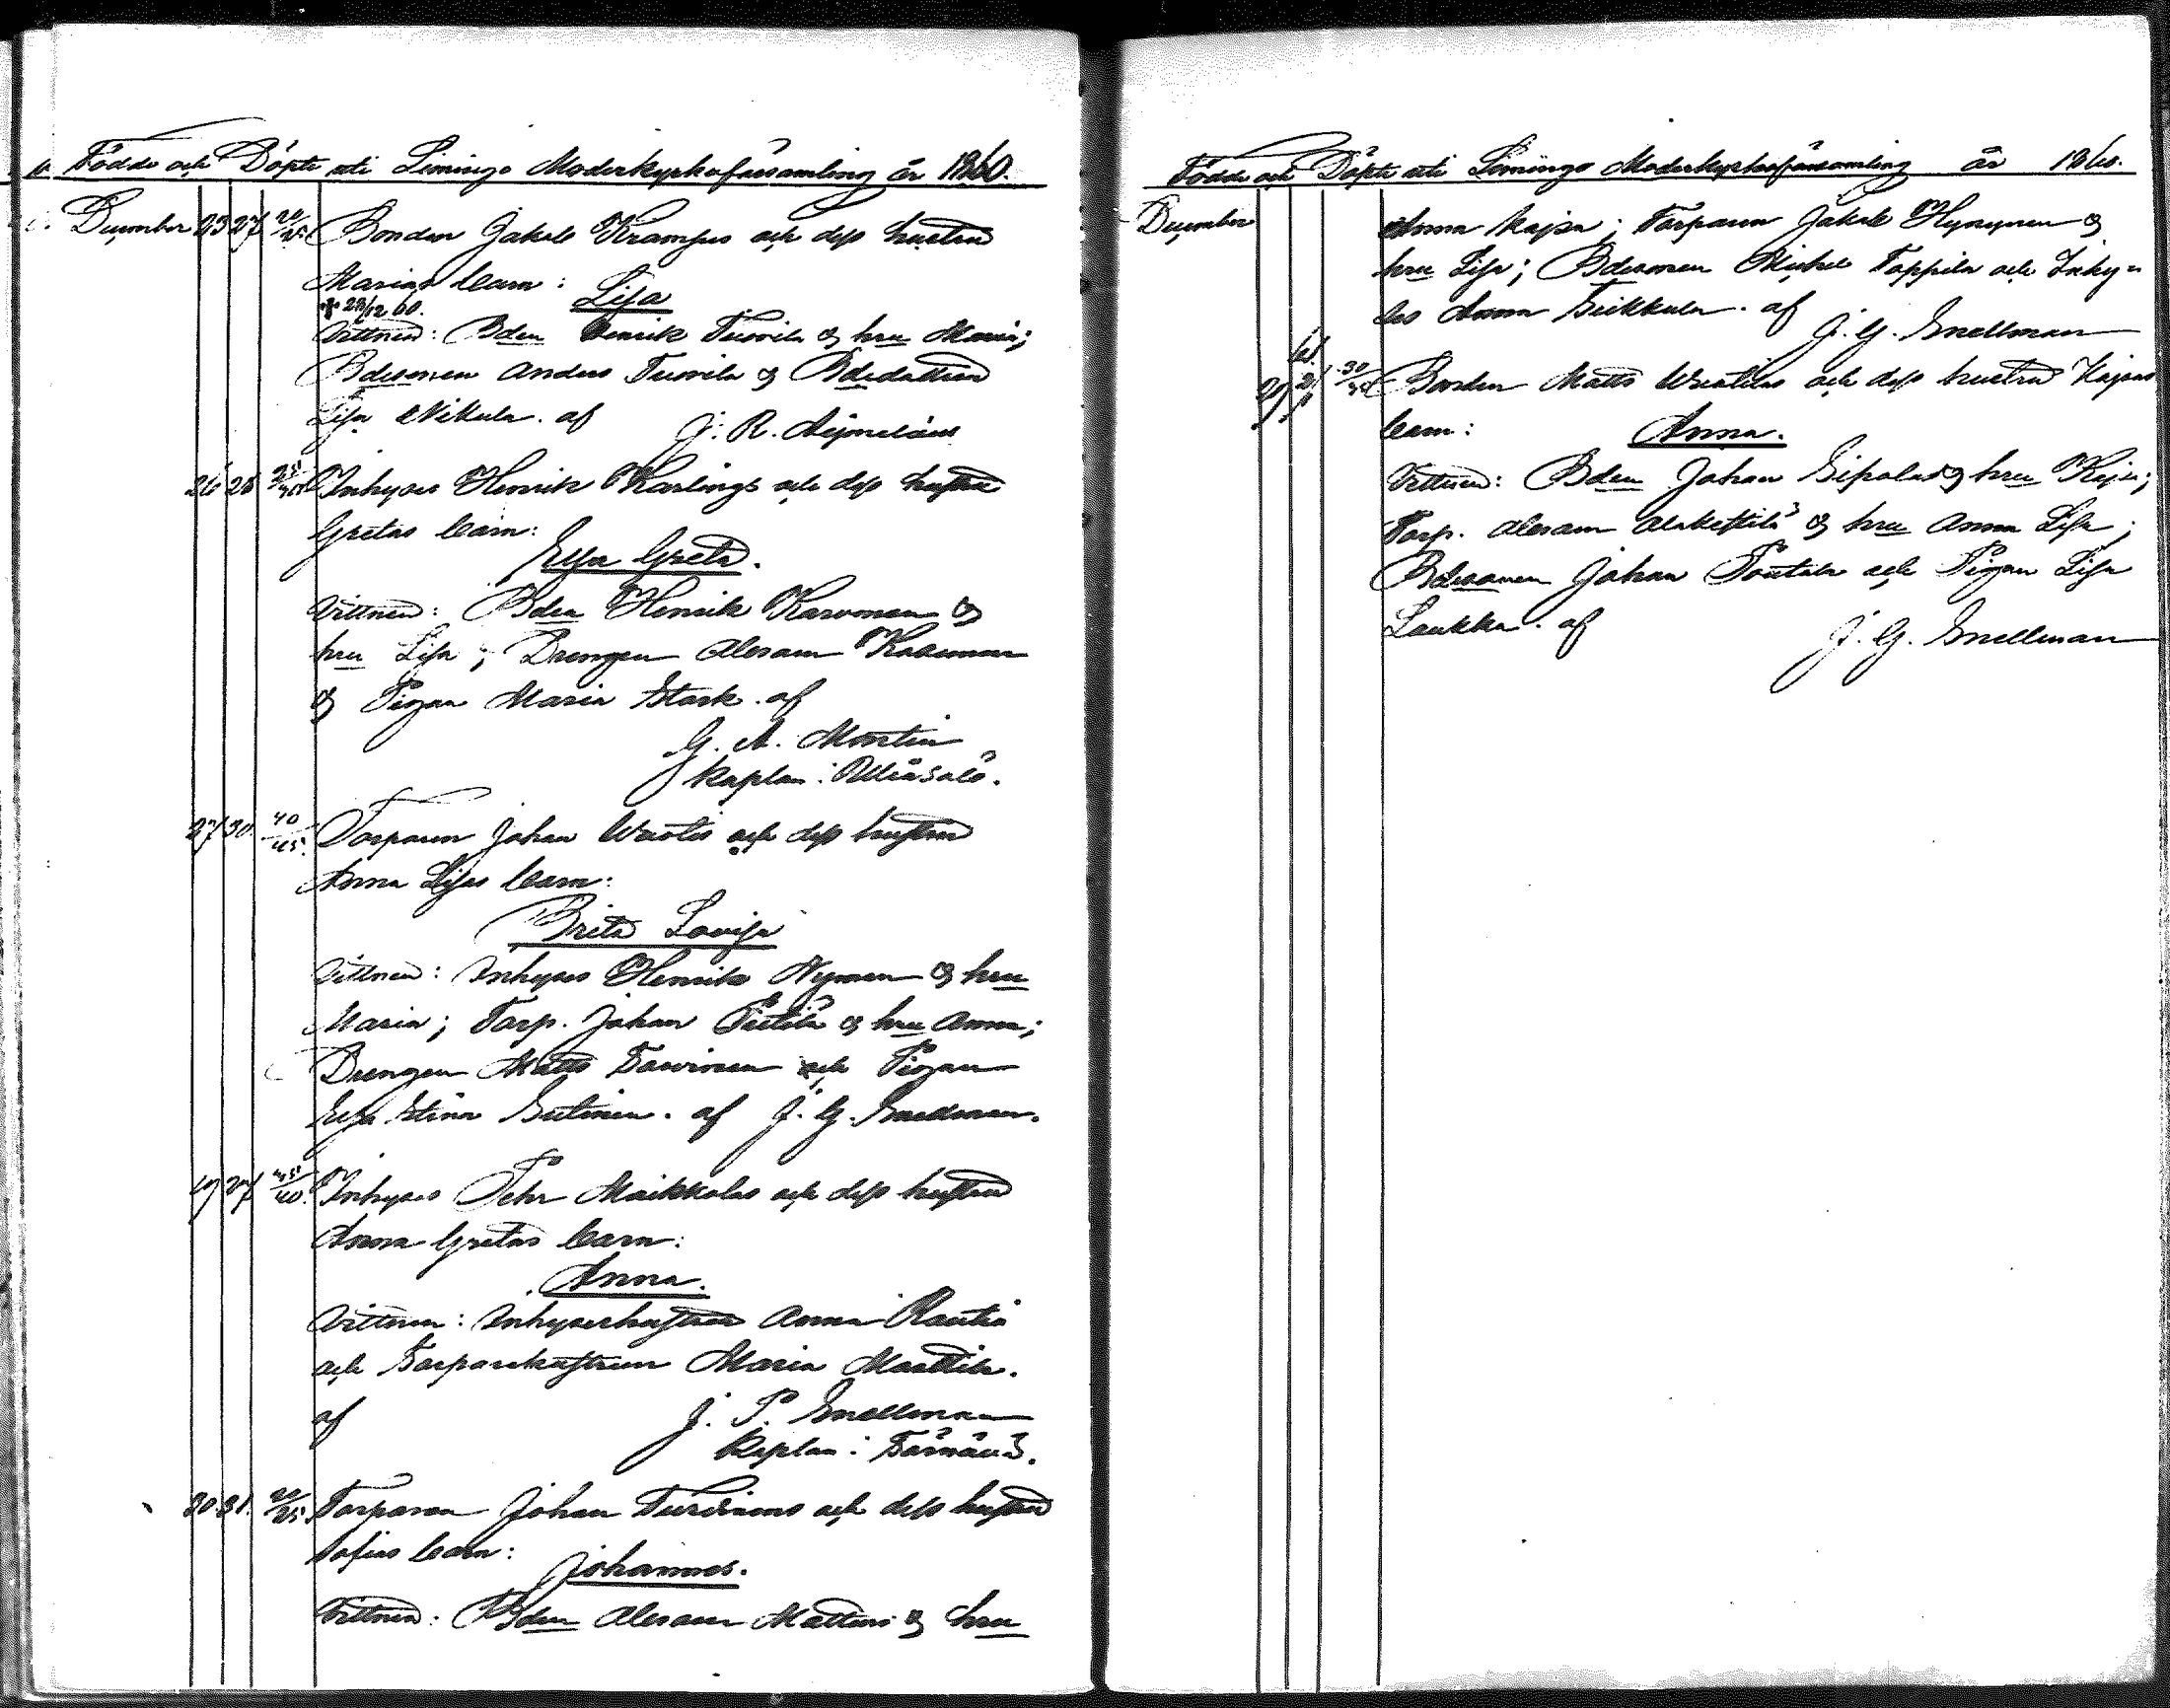 Födde och Döpte uti Limingo Moderkyrkoförsamling år 1860.
December 23 27 20/25 Bonden Jakob Krampus och dess hustru
Marias barn: Lisa
† 28/12 60.
Vittnen: Bden Henrik Tuovila & hru Maria;
Bdesonen Anders Tuovila & Bdedottren
Lisa Nikula. af J. R. Aejmelæus
26 28 Inhyses Henrik Karlings och dess hustru
Gretas barn:
Elsa Greta.
Vittnen: Bden Henrik Karvonen &
hru Lisa; Drengen Abram
& Pigan Maria Stark. af
G. A. Montin
Kaplan i Uleåsalo.
27 30. 40/45. Torparen Johan och dess hustru
Anna Lisas barn:
Brita Lovisa
Vittnen: Inhyses Henrik Nyman & hru
Maria; Torp. Johan Pietilä & hru Anna;
Drengen Matts och Pigan
Elsa Stina. af J. G. Snellman.
19 27 45/40. Inhyses Pehr Maikkolas och dess hustru
Anna Gretas barn:
Anna.
Vittnen: Inhyseshustrun Anna Rautio
och Torparehustrun Maria Marttila.
af J. P. Snellman
Kaplan i Tyrnävä.
30. 31. 20/25. Torparen Johan och dess hustru
Sofias barn:
Johannes.
Vittnen: Bden Abram Mattus & hru
Födde och Döpte uti Limingo Moderkyrkoförsamling år 1860.
December
Anna Kajsa; Torparen Jakob Hyvynen &
hru Lisa; Bdesonen Michel Toppila och Inhy=
ses Anna Heikkula. af
J. G. Snellman
29 Bonden Matts och dess hustru Kajsas
barn: Anna.
Vittnen: Bden Johan Sipola & hru Kajsa;
Torp. Abram Alakestilä & hru Anna Lisa;
Bdesonen Johan och Pigan Lisa
Laukka. af
J. G. Snellman